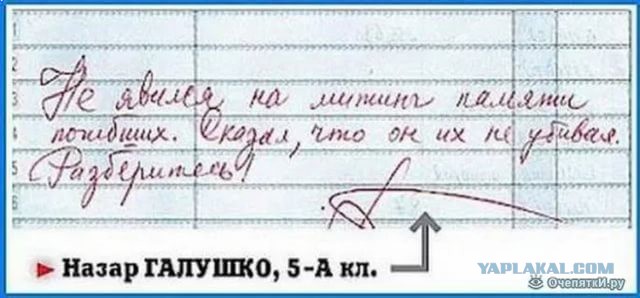 1
2
3
4
5
6
Не явился на митинг памяти
погибших. Сказал, что он их не убивал.
Разберитесь!
Назар ГАЛУШКО, 5-А кл.
YAPLAKAL.COM
Очепятки.ру